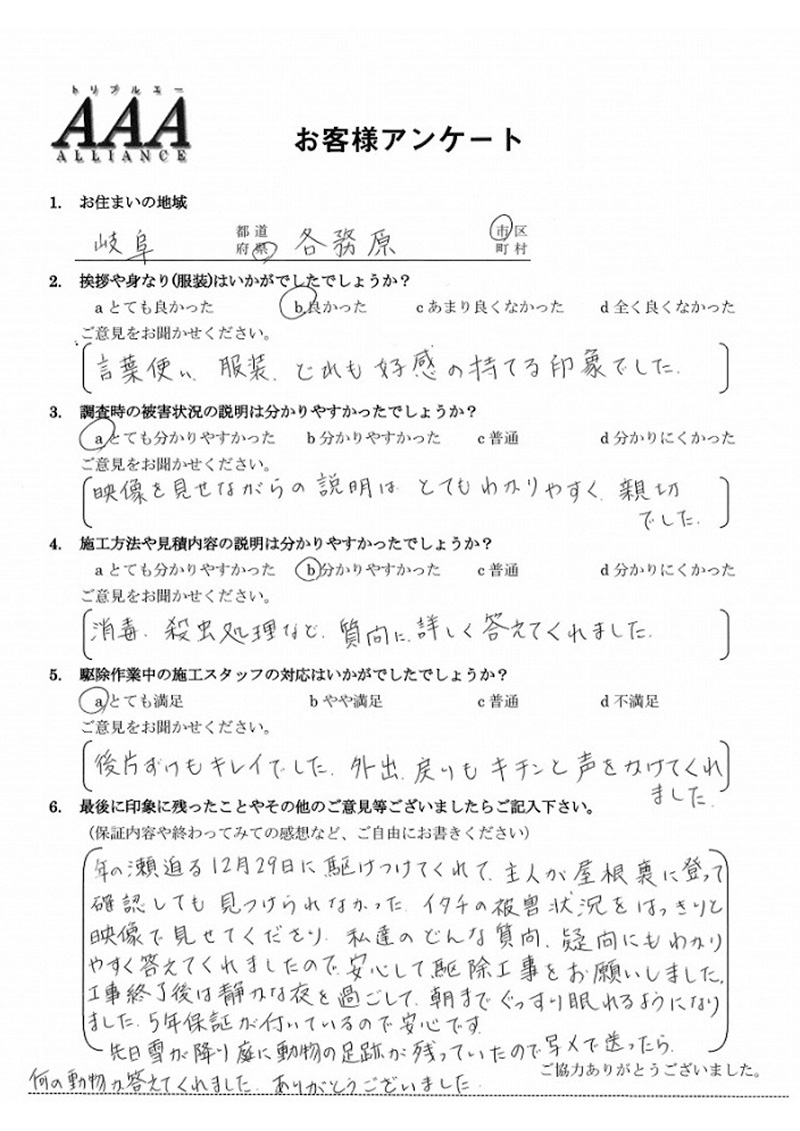 トリプルエー
AAA
ALLIANCE
お客様アンケート
1. お住まいの地域
岐阜 都道府県 各務原 市区町村
2. 挨拶や身なり(服装)はいかがでしたでしょうか?
a とても良かった b 良かった c あまり良くなかった d 全く良くなかった
ご意見をお聞かせください。
言葉使い、服装、どれも好感の持てる印象でした。
3. 調査時の被害状況の説明は分かりやすかったでしょうか?
a とても分かりやすかった b 分かりやすかった c 普通 d 分かりにくかった
ご意見をお聞かせください。
映像を見せながらの説明は、とてもわかりやすく、親切
でした。
4. 施工方法や見積内容の説明は分かりやすかったでしょうか?
a とても分かりやすかった b 分かりやすかった c 普通 d 分かりにくかった
ご意見をお聞かせください。
消毒、殺虫処理など、質問に、詳しく答えてくれました。
5. 駆除作業中の施工スタッフの対応はいかがでしたでしょうか?
a とても満足 b やや満足 c 普通 d 不満足
ご意見をお聞かせください。
後片ずけもキレイでした。外出、戻りもキチンと声をかけてくれ
ました。
6. 最後に印象に残ったことやその他のご意見等ございましたらご記入下さい。
(保証内容や終わってみての感想など、ご自由にお書きください)
年の瀬迫る12月29日に駆けつけてくれて、主人が屋根裏に登って
確認しても見つけられなかった、イタチの被害状況をはっきりと
映像で見せてくださり、私達のどんな質問、疑問にもわかり
やすく答えてくれましたので、安心して駆除工事をお願いしました。
工事終了後は静かな夜を過ごして、朝までぐっすり眠れるようになり
ました。5年保証が付いているので安心です。
先日雪が降り庭に動物の足跡が残っていたので写メで送ったら、
ご協力ありがとうございました。
何の動物か答えてくれました。ありがとうございました。